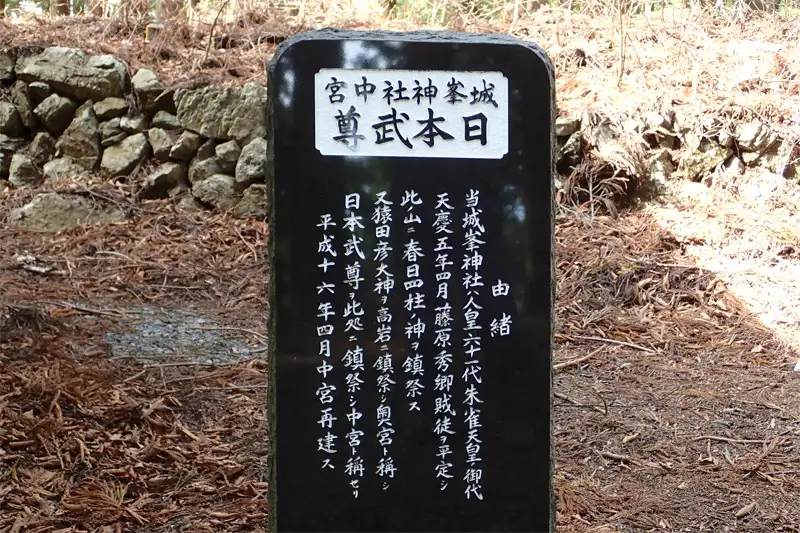 城峯神社中宮
日本武尊
由緒
当城峯神社ハ人皇六十一代朱雀天皇ノ御代
天慶五年四月藤原秀郷賊徒ヲ平定シ
此山ニ春日四柱ノ神ヲ鎮祭ス
又猿田彦大神ヲ高岩ニ鎮祭シ奥宮ト称シ
日本武尊ヲ此処ニ鎮祭シ中宮ト称セリ
平成十六年四月中宮再建ス